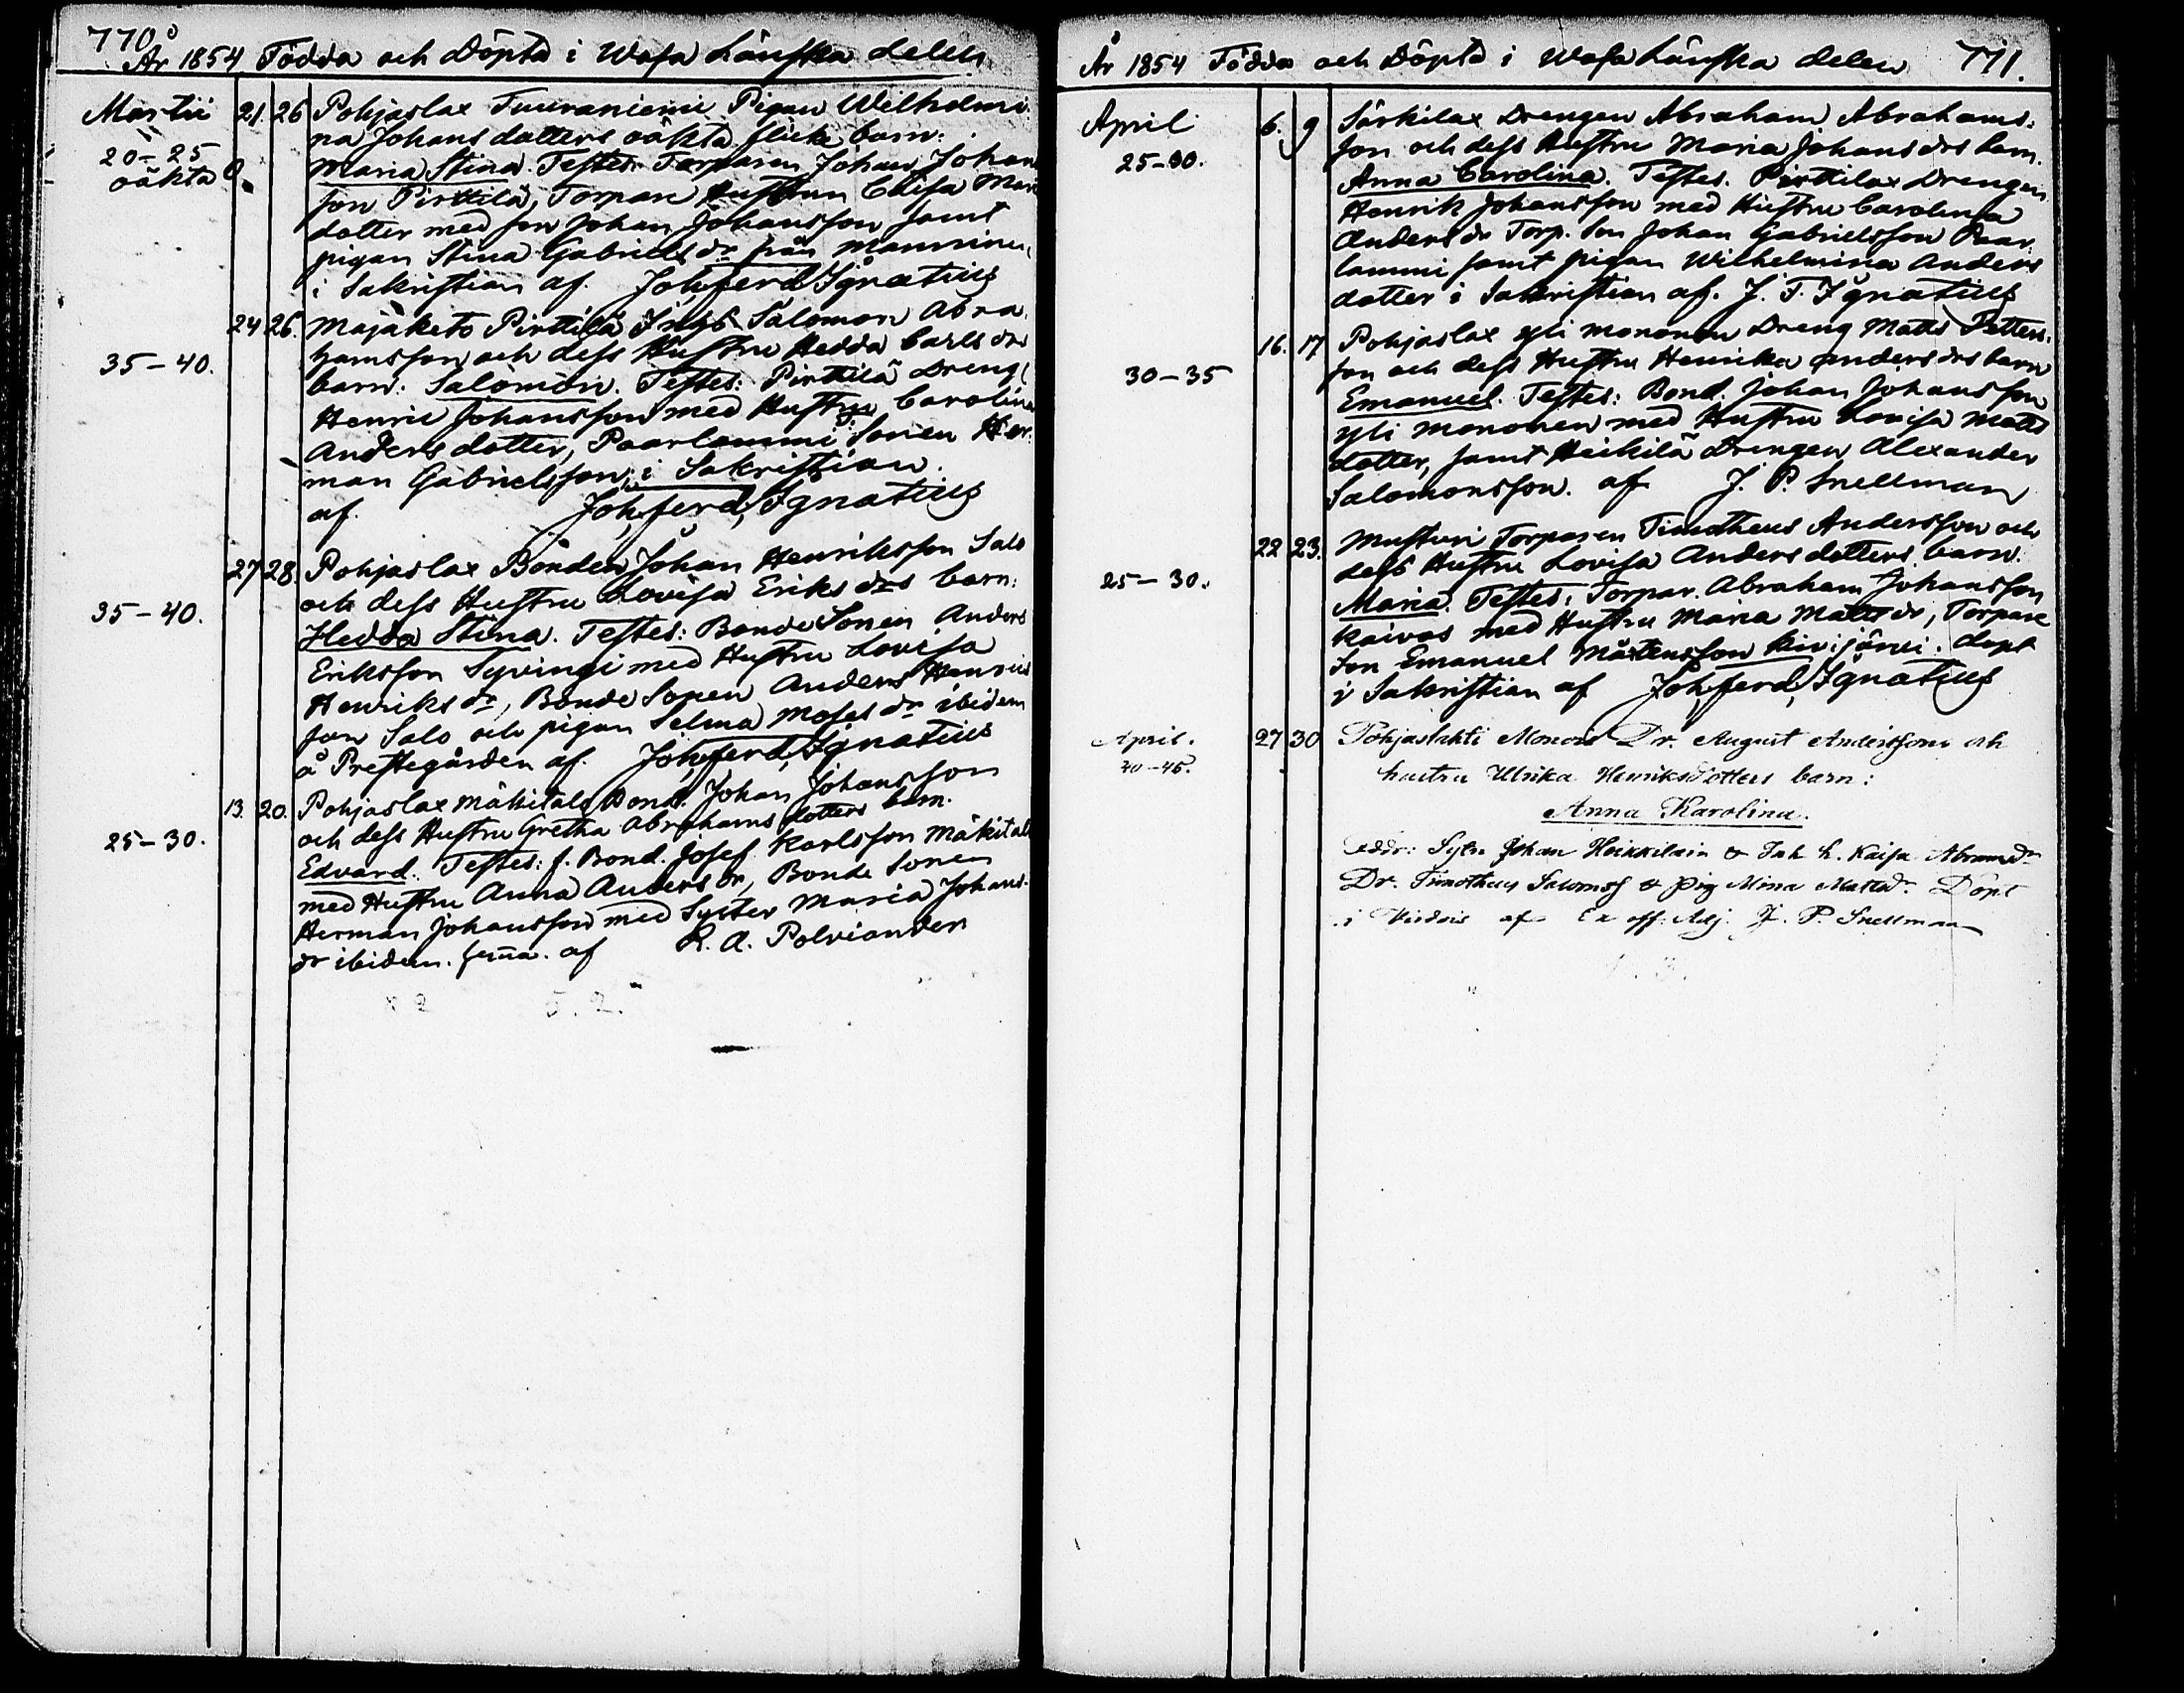 770
År 1854 Födda och Döpta i Wasa Länska delen
Martii 21. 26 Pohjaslax Tuuraniemi Pigan Wilhelmi-
20-25 na Johansdotters oäkta flicke barn:
oäkta Maria Stina. Testes: Torparen Johan Johans
son Pirttilä, Torpare Hustrun Caisa
dotter med son Johan Johansson samt
pigan Stina Gabriels dr från
i Sakristian af. Joh. ferd. Ignatius
24 26. Majaketo Pirttilä Inhys Salomon Abra-
35-40. hamsson och dess Hustru Hedda Carls drs
barn: Salomon. Testes: Pirttilä Dreng
Henric Johansson med Hustru Carolina
Anders dotter, Paarlammi Sonen Her-
man Gabrielsson, i Sakristian.
af. Joh. ferd. Ignatius
27 28. Pohjaslax Bonden Johan Henriksson Salo
35-40. och dess Hustru Lovisa Eriks drs barn:
Hedda Stina. Testes: Bonde Sonen Anders
Eriksson Syvingi med Hustru Lovisa
Henriks dr, Bonde Sonen Anders Henrics
son Salo och pigan Selma Moses dr ibidem
å Prestegården af. Joh. ferd. Ignatius
13. 20. Pohjaslax Mäkitalo Bond. Johan Johansson
25-30. och dess Hustru Gretha Abrahams dotters barn.
Edvard. Testes: f. Bond. Josef Karlsson Mäkitalo
med Hustru Anna Anders dr, Bonde Sonen
Herman Johansson med Syster Maria Johans-
dr ibidem. hema. af R. A. Polviander
År 1854 Födda och Döpta i Wasa Länska delen 771.
April 6. 9 Särkilax Drengen Abraham Abrahams-
25-30. son och dess Hustru Maria Johans drs barn.
Anna Carolina. Testes. Pirttilax Drengen
Henrik Johansson med Hustru Carolina
Anders dr Torp. Son Johan Gabrielsson Paar-
lammi samt pigan Wilhelmina Anders
dotter i Sakristian af. J. F. Ignatius
16. 17 Pohjaslax Yli Mononen Dreng Matts Petters-
30-35 son och dess Hustru Henrika Anders drs barn
Emanuel. Testes: Bond. Johan Johansson
Yli Mononen med Hustru Lovisa Matts
dotter, samt Heikilä Drengen Alexander
Salomonsson. af J. P. Snellman
22 23. Musturi Torparen Timotheus Andersson och
25-30. dess Hustru Lovisa Anders dotters barn.
Maria. Testes: Torpar. Abraham Johansson
Kaivos med Hustru Maria Matts dr, Torpare
Son Emanuel Mårtensson Kivijärvi. döpt
i Sakristian af Joh. ferd. Ignatius
April. 27 30 Pohjaslahti Monois Dr. August Anderssons och
40-45. hustru Ulrika Henriksdotters barn:
Anna Karolina.
Faddr: Sytn Johan Heikkilain & Inh h. Kaisa Abramdr
Dr. Timotheus Salomss & Pig Mina Mattsdr. Döpt
i Virdois af Ex off. Adj. J. P. Snellman